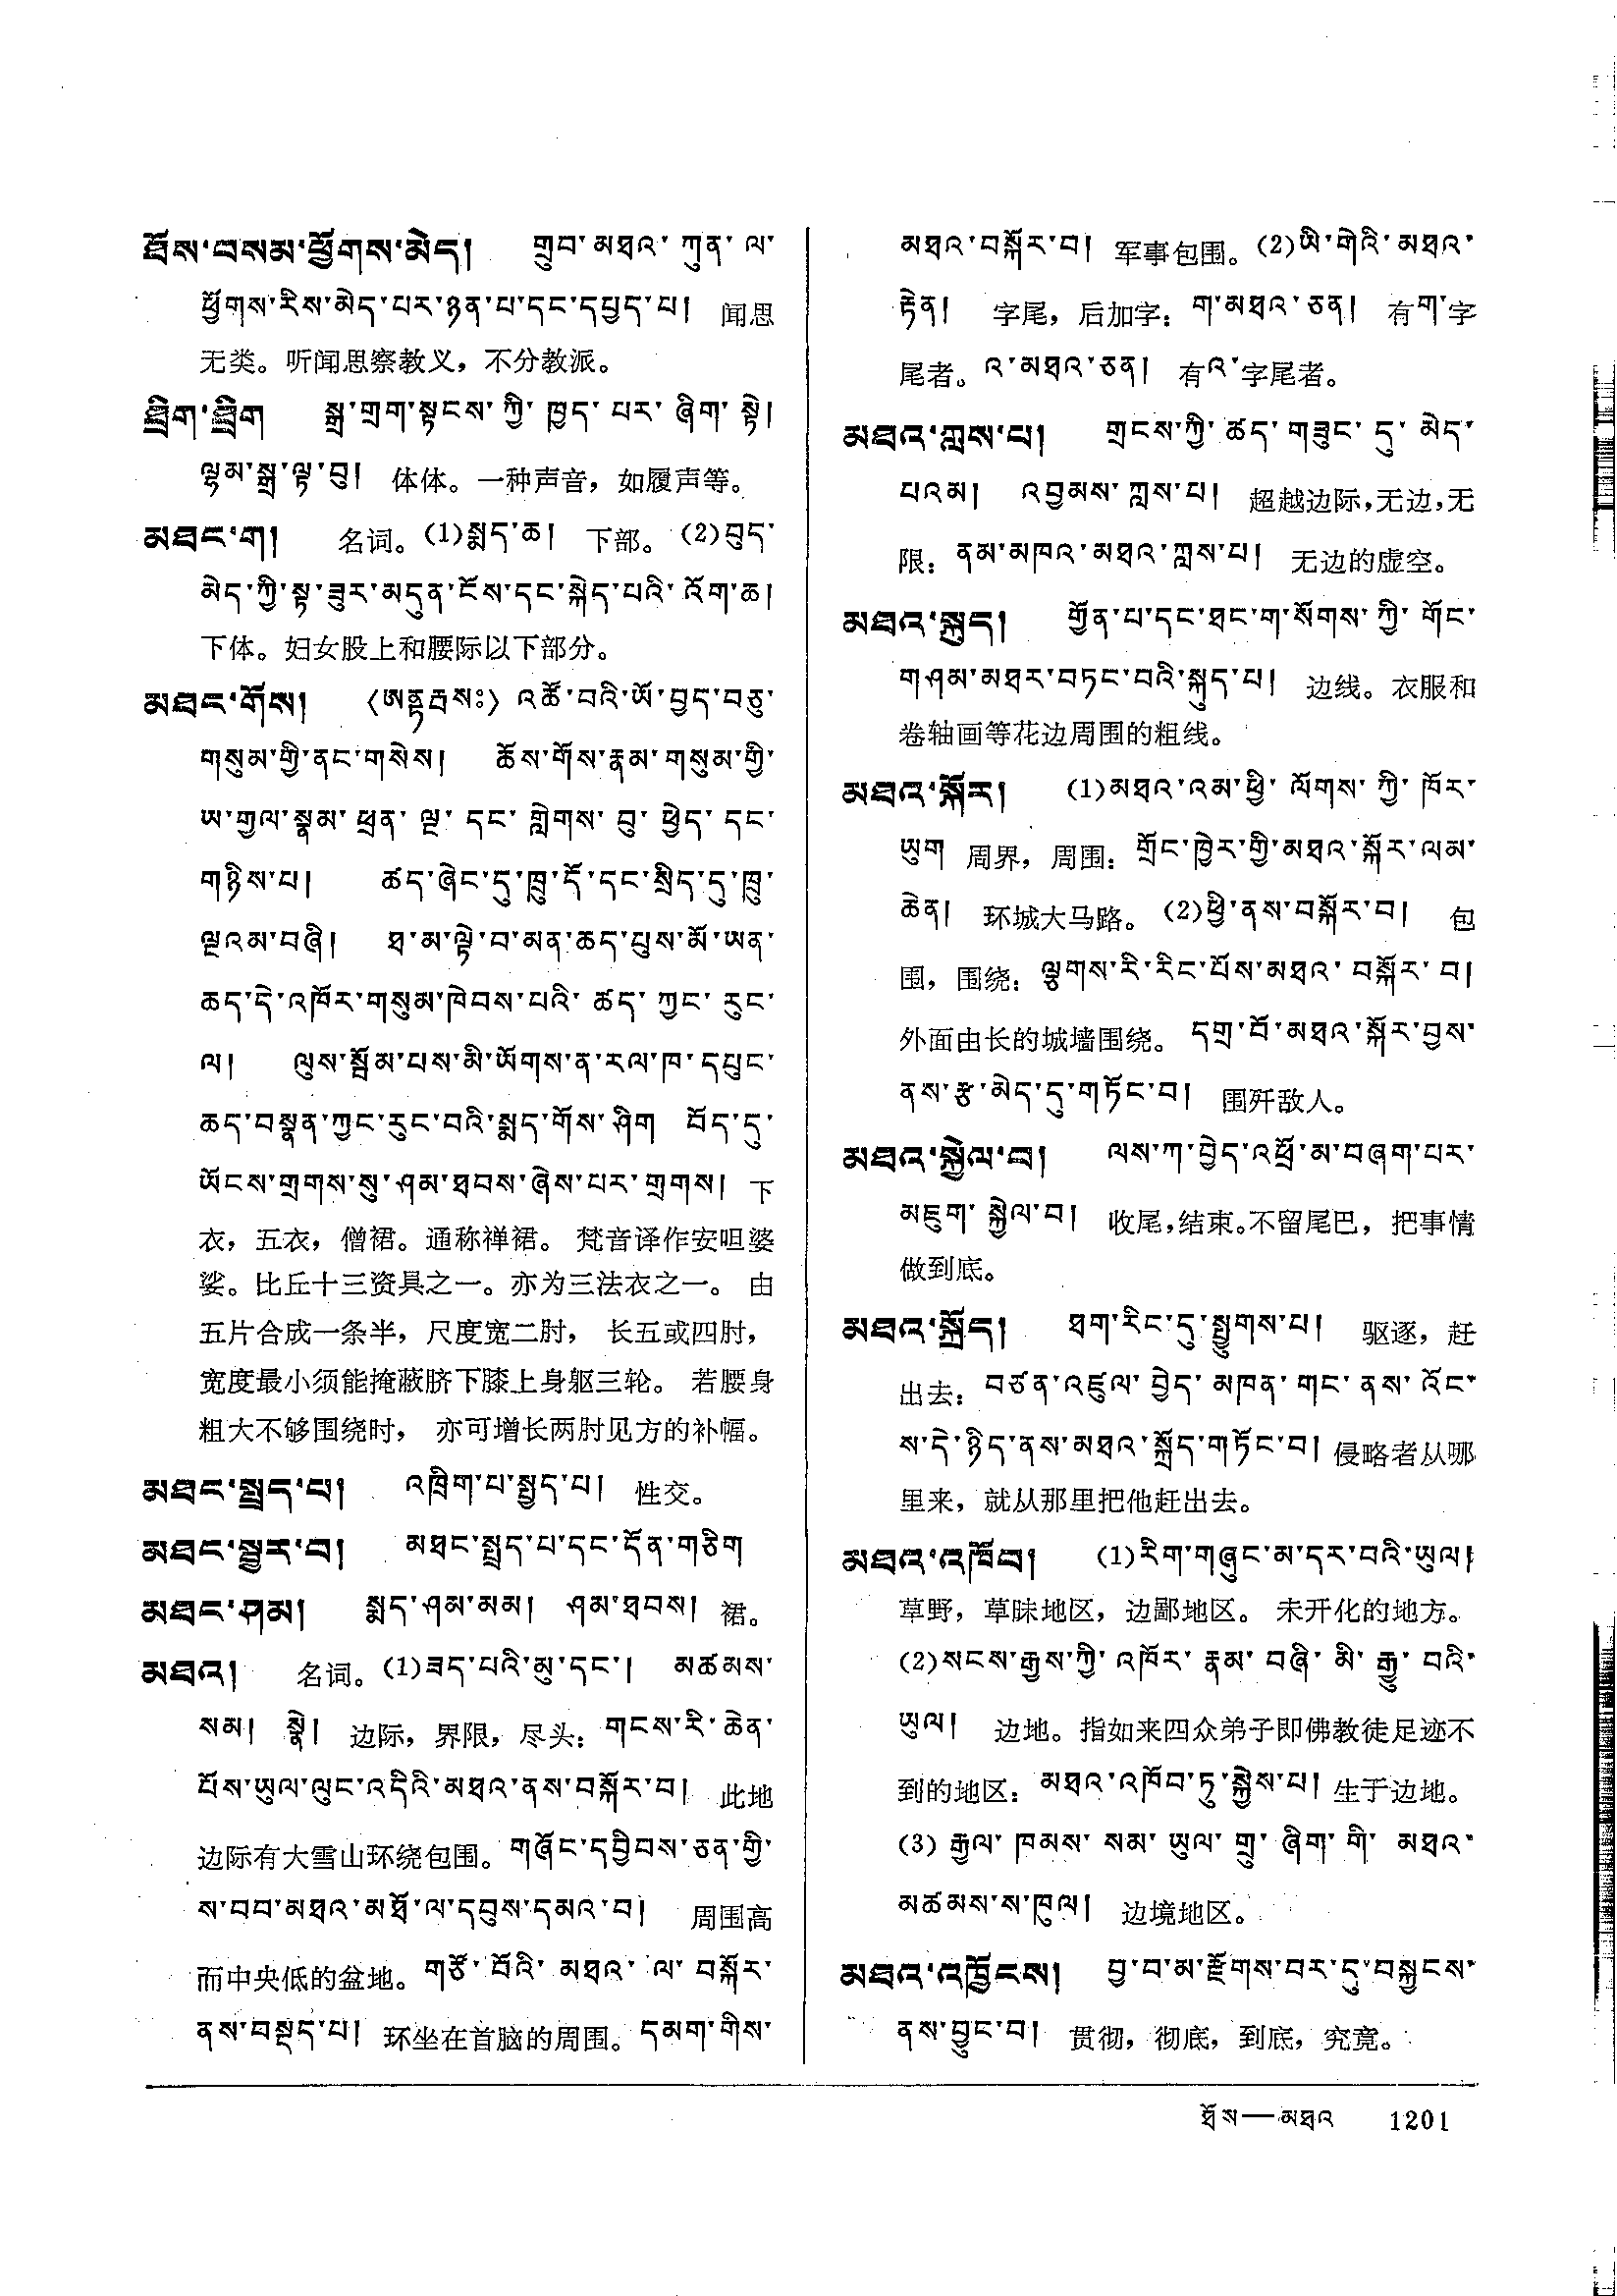 ཐོས་བསམ་ཕྱོགས་མེད། གྲུབ་མཐའ་ཀུན་ལ་
ཕྱོགས་རིས་མེད་པར་ཉན་པ་དང་དཔྱད་པ། 闻思
无类。听闻思察教义，不分教派。
ཐྲིག་ཐྲིག སྒྲ་གྲག་སྟངས་ཀྱི་ཁྱད་པར་ཞིག་སྟེ།
ལྷམ་སྒྲ་ལྟ་བུ། 体体。一种声音，如履声等。
མཐང་ག། 名词。(1)སྨད་ཆ། 下部。(2)བུད་
མེད་ཀྱི་སྟ་ཟུར་མདུན་ངོས་དང་སྐེད་པའི་འོག་ཆ།
下体。妇女股上和腰际以下部分。
མཐང་གོས། 〈ཨནྟརྦསཿ〉འཚོ་བའི་ཡོ་བྱད་བཅུ་
གསུམ་གྱི་ནང་གསེས། ཆོས་གོས་རྣམ་གསུམ་གྱི་
ཡ་གྱལ་སྣམ་ཕྲན་ལྔ་དང་གླེགས་བུ་ཕྱེད་དང་
གཉིས་པ། ཚད་ཞེང་དུ་ཁྲུ་དོ་དང་སྲིད་དུ་ཁྲུ་
ལྔའམ་བཞི། ཐ་མ་ལྟེ་བ་མན་ཆད་པུས་མོ་ཡན་
ཆད་དེ་འཁོར་གསུམ་ཁེབས་པའི་ཚད་ཀྱང་རུང་
ལ། ལུས་སྦོམ་པས་མི་ཡོགས་ན་རལ་ཁ་དཔུང་
ཆད་བསྣན་ཀྱང་རུང་བའི་སྨད་གོས་ཤིག བོད་དུ་
ཡོངས་གྲགས་སུ་ཤམ་ཐབས་ཞེས་པར་གྲགས། 下
衣，五衣，僧裙。通称禅裙。梵音译作安呾婆
娑。比丘十三资具之一。亦为三法衣之一。由
五片合成一条半，尺度宽二肘，长五或四肘，
宽度最小须能掩蔽脐下膝上身躯三轮。若腰身
粗大不够围绕时，亦可增长两肘见方的补幅。
མཐང་སྤྲད་པ། འཁྲིག་པ་སྤྱད་པ། 性交。
མཐང་སྦྱར་བ། མཐང་སྤྲད་པ་དང་དོན་གཅིག
མཐང་ཤམ། སྨད་ཤམ་མམ། ཤམ་ཐབས། 裙。
མཐའ། 名词。(1)ཟད་པའི་མུ་དང་། མཚམས་
སམ། སྣེ། 边际，界限，尽头：གངས་རི་ཆེན་
པོས་ཡུལ་ལུང་འདིའི་མཐའ་ནས་བསྐོར་བ། 此地
边际有大雪山环绕包围。གཞོང་དབྱིབས་ཅན་གྱི་
ས་བབ་མཐའ་མཐོ་ལ་དབུས་དམའ་བ། 周围高
而中央低的盆地。གཙོ་བོའི་མཐའ་ལ་བསྐོར་
ནས་བསྡད་པ། 环坐在首脑的周围。དམག་གིས་
མཐའ་བསྐོར་བ། 军事包围。(2)ཡི་གེའི་མཐའ་
རྟེན། 字尾，后加字：ག་མཐའ་ཅན། 有ག་字
尾者。འ་མཐའ་ཅན། 有འ་字尾者。
མཐའ་ཀླས་པ། གྲངས་ཀྱི་ཚད་གཟུང་དུ་མེད་
པའམ། འབྱམས་ཀླས་པ། 超越边际，无边，无
限：ནམ་མཁའ་མཐའ་ཀླས་པ། 无边的虚空。
མཐའ་སྐུད། གྱོན་པ་དང་ཐང་ག་སོགས་ཀྱི་གོང་
གཤམ་མཐར་བཏང་བའི་སྐུད་པ། 边线。衣服和
卷轴画等花边周围的粗线。
མཐའ་སྐོར། (1)མཐའ་འམ་ཕྱི་ལོགས་ཀྱི་ཁོར་
ཡུག 周界，周围：གྲོང་ཁྱེར་གྱི་མཐའ་སྐོར་ལམ་
ཆེན། 环城大马路。(2)ཕྱི་ནས་བསྐོར་བ། 包
围，围绕：ལྕགས་རི་རིང་པོས་མཐའ་བསྐོར་བ།
外面由长的城墙围绕。དགྲ་བོ་མཐའ་སྐོར་བྱས་
ནས་རྩ་མེད་དུ་གཏོང་བ། 围歼敌人。
མཐའ་སྐྱེལ་བ། ལས་ཀ་བྱེད་འཕྲོ་མ་བཞག་པར་
མཇུག་སྐྱེལ་བ། 收尾，结束。不留尾巴，把事情
做到底。
མཐའ་སྐྲོད། ཐག་རིང་དུ་སྤྱུགས་པ། 驱逐，赶
出去：བཙན་འཛུལ་བྱེད་མཁན་གང་ནས་འོང་
ས་དེ་ཉིད་ནས་མཐའ་སྐྲོད་གཏོང་བ། 侵略者从哪
里来，就从那里把他赶出去。
མཐའ་འཁོབ། (1)རིག་གཞུང་མ་དར་བའི་ཡུལ།
草野，草昧地区，边鄙地区。未开化的地方。
(2)སངས་རྒྱས་ཀྱི་འཁོར་རྣམ་བཞི་མི་རྒྱུ་བའི་
ཡུལ། 边地。指如来四众弟子即佛教徒足迹不
到的地区：མཐའ་འཁོབ་ཏུ་སྐྱེས་པ། 生于边地。
(3)རྒྱལ་ཁམས་སམ་ཡུལ་གྲུ་ཞིག་གི་མཐའ་
མཚམས་ས་ཁུལ། 边境地区。
མཐའ་འཁྱོངས། བྱ་བ་མ་རྫོགས་བར་དུ་བསྐྱངས་
ནས་བྱུང་བ། 贯彻，彻底，到底，究竟。
ཐོས—མཐའ 1201